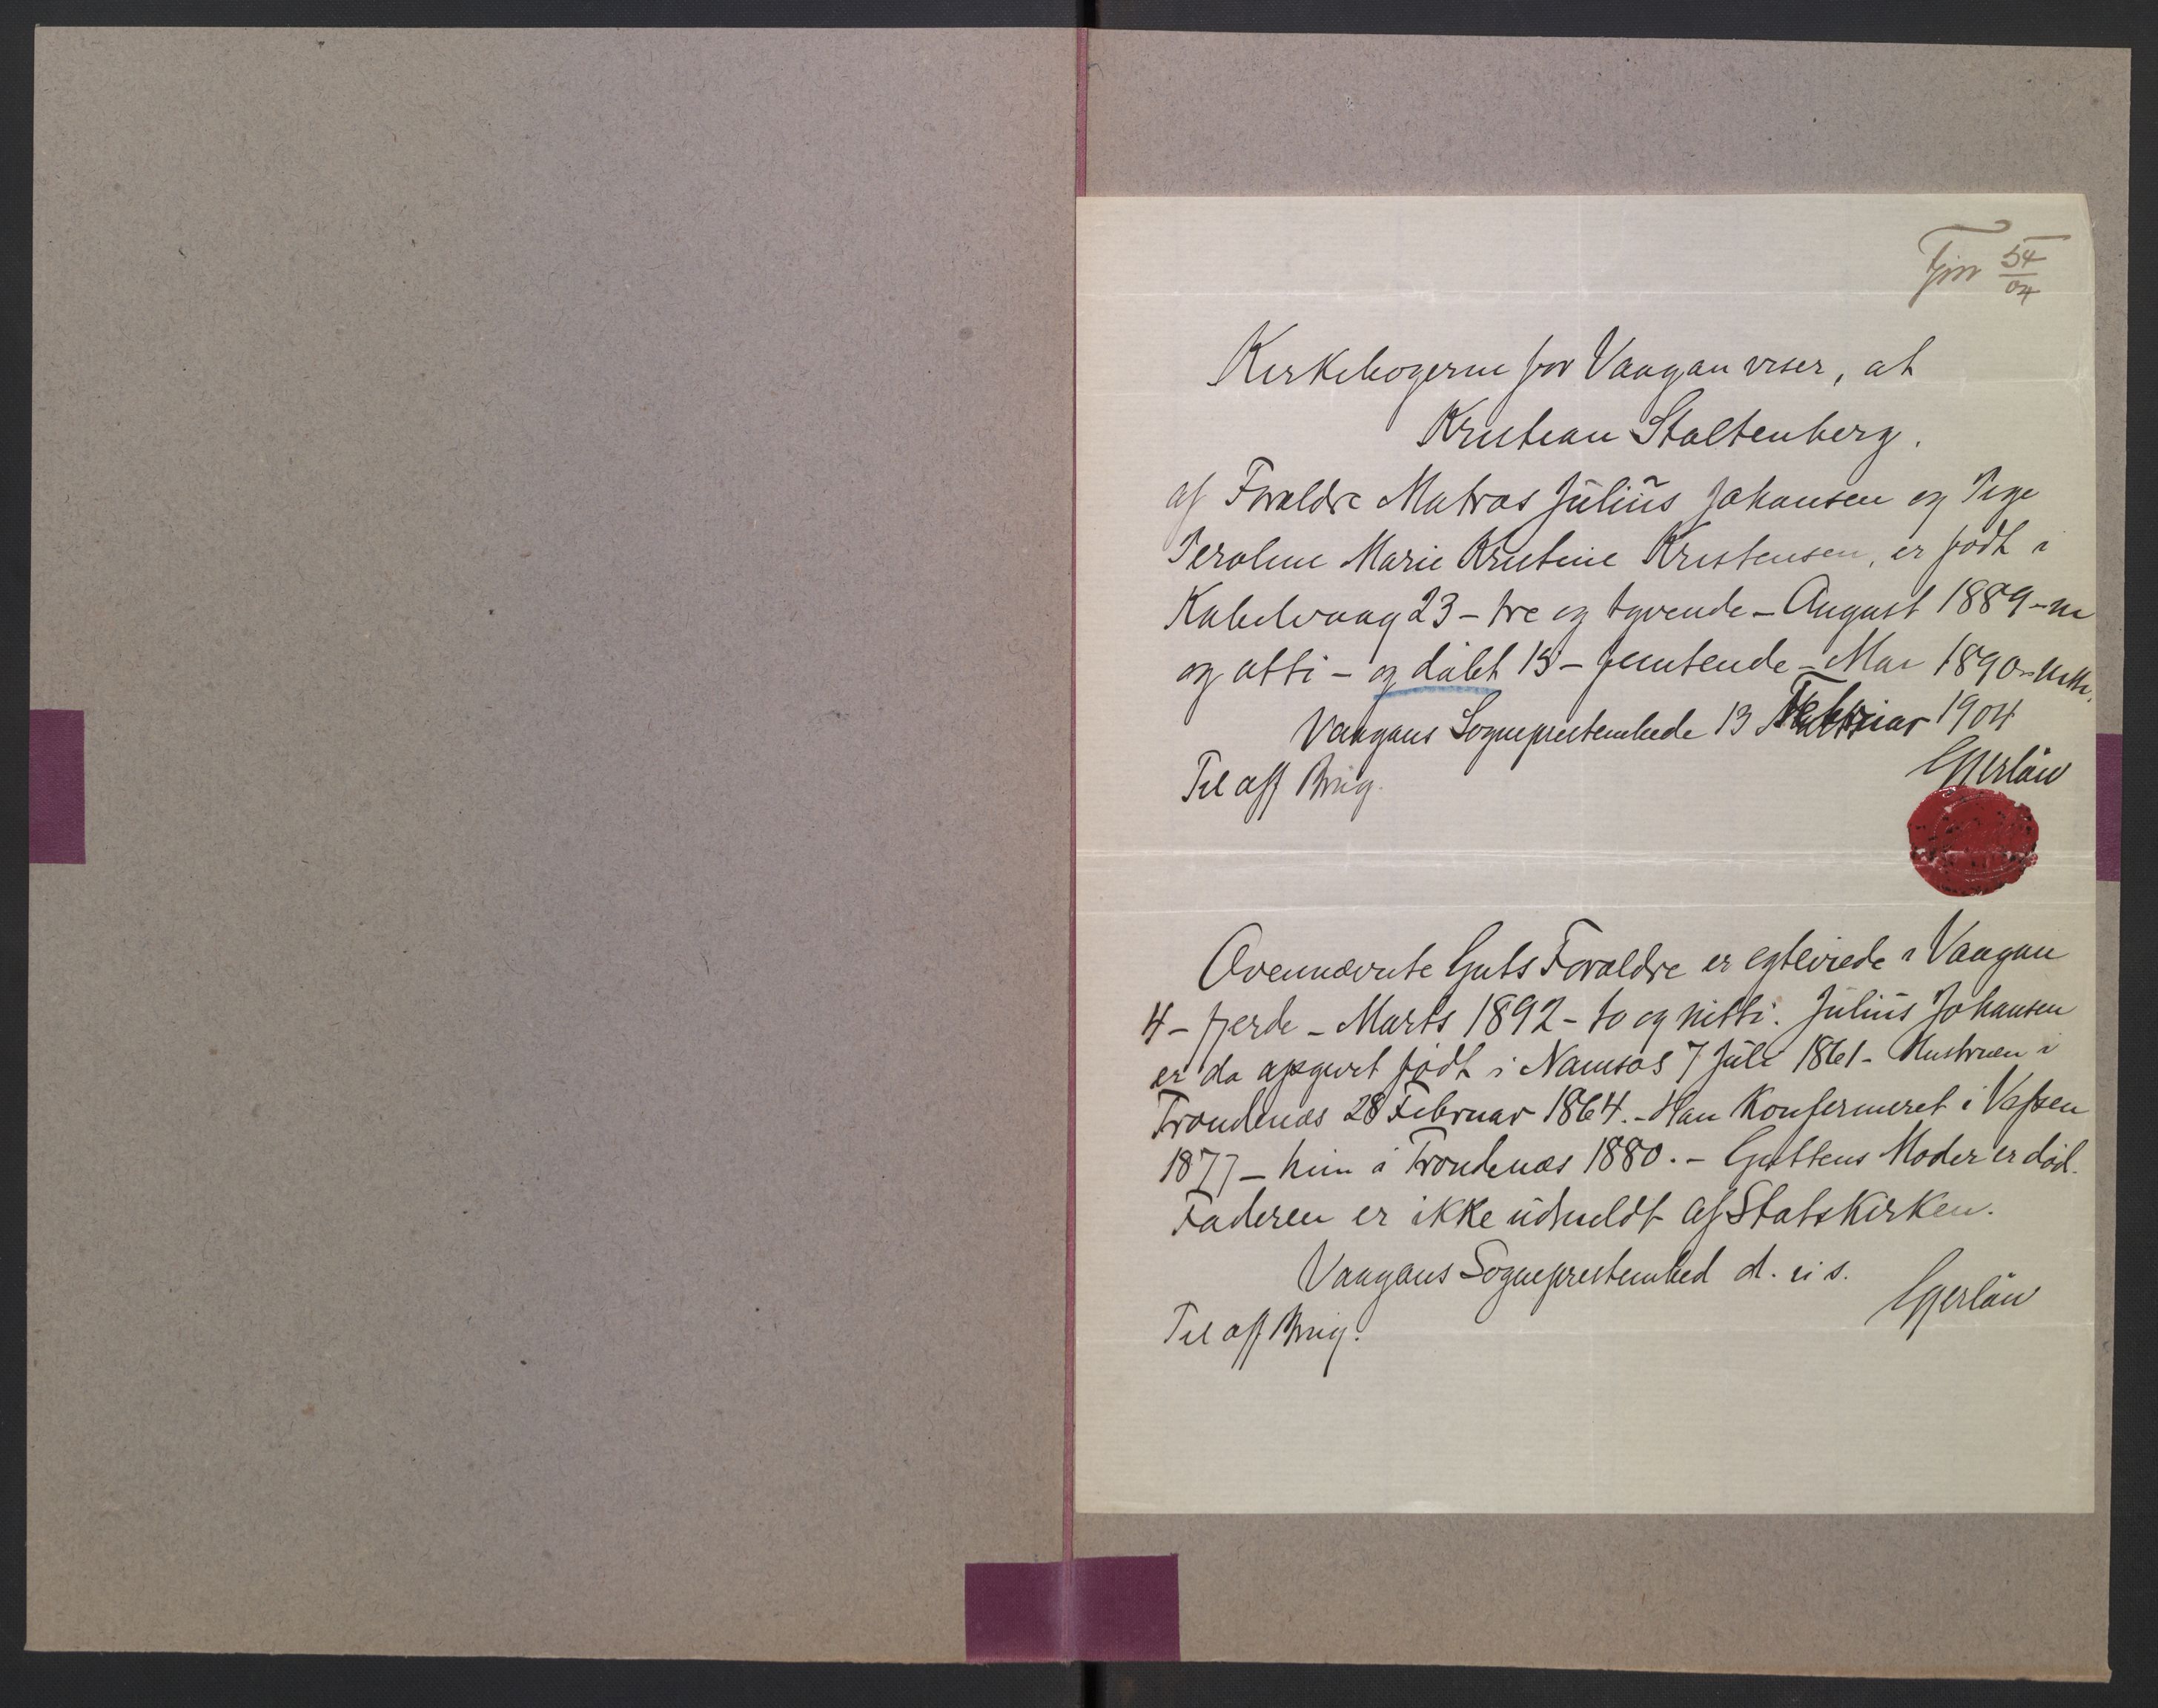 Tjm 54/04
Kirkebogerne for Vaagan viser, at
Kristian Stoltenberg.
af Forældre Matros Julius Johansen og Pige
Peroline Marie Kristine Kristensen, er født i
Kabelvaag 23 – tre og tyvende – August 1889 – ni
og otti – og døbt 15 – femtende – Mai 1890 – nitti.
Vaagans Sogneprestembede 13 Februar 1904
Gjerløw
Til off Brug.
Ovennævnte Guts Forældre er egteviede i Vaagan
4 – fjerde – Marts 1892 – to og nitti. Julius Johansen
er da opgivet født i Namsos 7 Juli 1861 – Hustruen i
Trondenæs 28 Februar 1864. – Han konfirmeret i Vefsen
1877 – hun i Trondenæs 1880. – Guttens Moder er død.
Faderen er ikke udmeldt af Statskirken.
Vaagans Sogneprestembed d. u. s.
Gjerløw
Til off Brug.